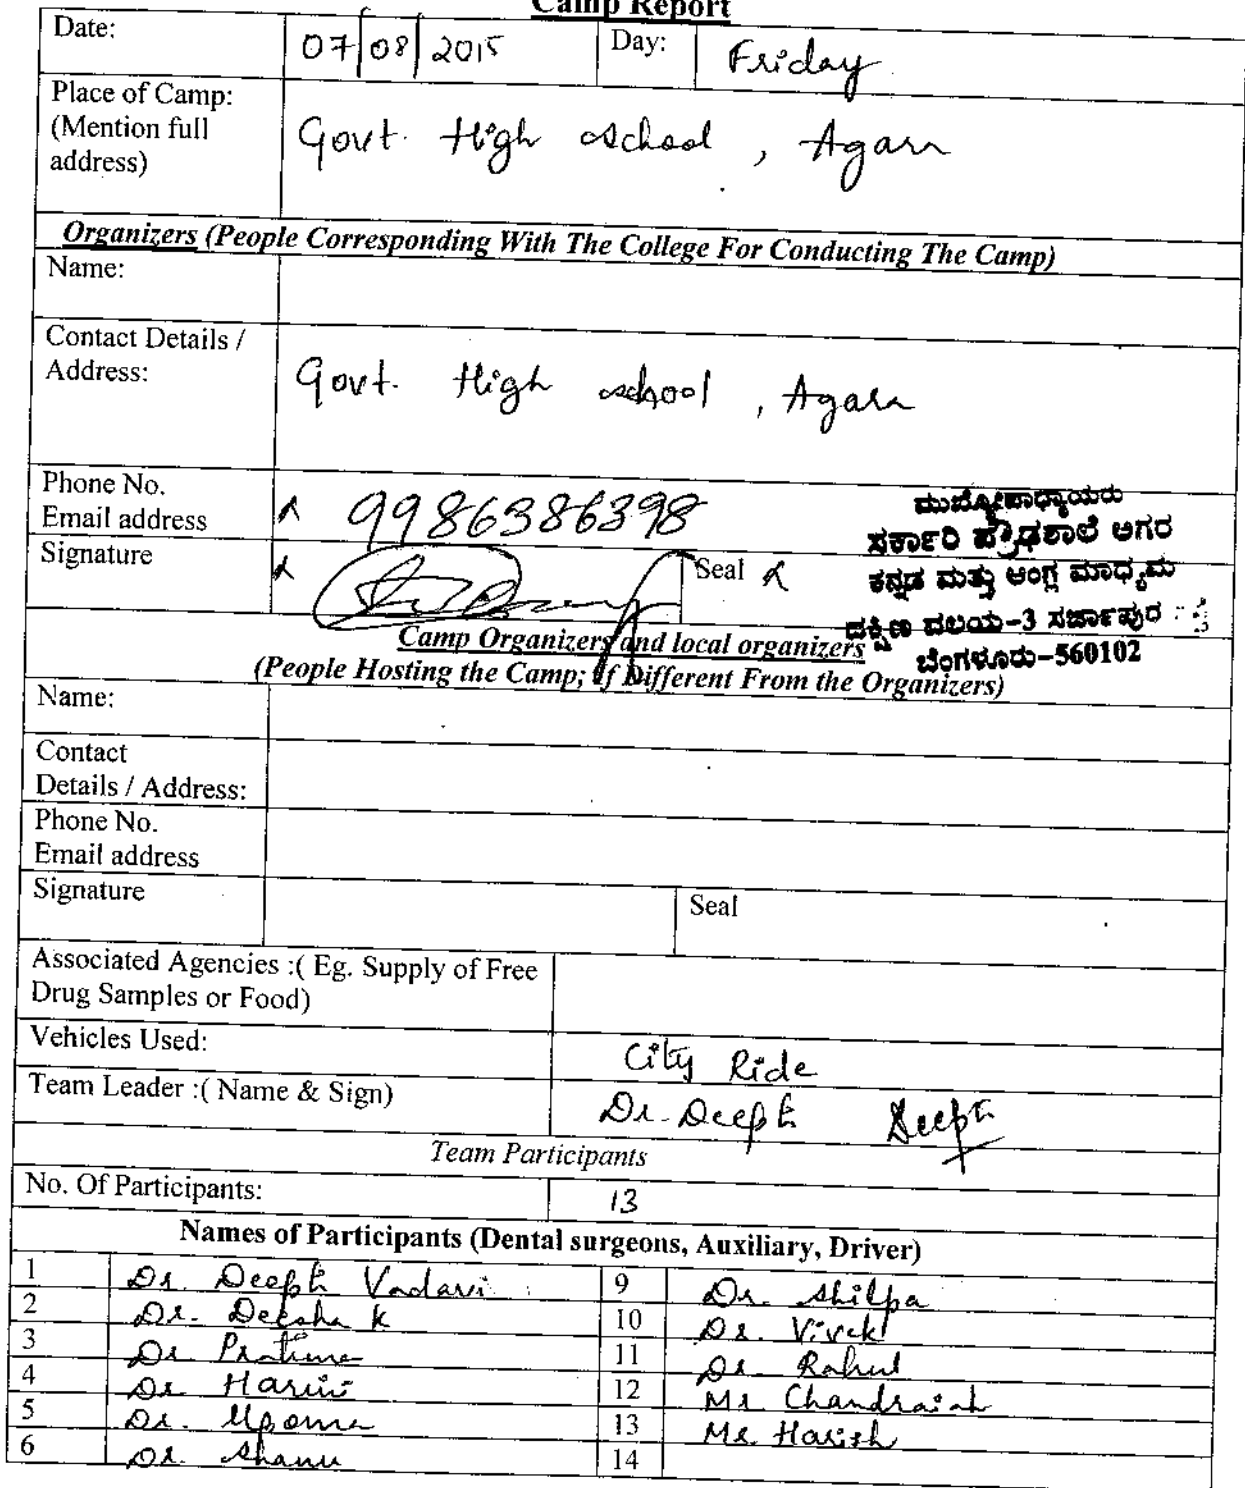 Camp Report
Date: 07/08/2015 Day: Friday
Place of Camp:
(Mention full
address)
Govt. High school, Agara
Organizers (People Corresponding With The College For Conducting The Camp)
Name:
Contact Details /
Address:
Govt. High school, Agara
Phone No.
Email address
9986386398
Signature
Seal
ಮುಖ್ಯೋಪಾಧ್ಯಾಯರು
ಸರ್ಕಾರಿ ಪ್ರೌಢಶಾಲೆ ಅಗರ
ಕನ್ನಡ ಮತ್ತು ಆಂಗ್ಲ ಮಾಧ್ಯಮ
ದಕ್ಷಿಣ ವಲಯ-3 ಸರ್ಜಾಪುರ
ಬೆಂಗಳೂರು-560102
Camp Organizers and local organizers
(People Hosting the Camp; If Different From the Organizers)
Name:
Contact
Details / Address:
Phone No.
Email address
Signature
Seal
Associated Agencies :( Eg. Supply of Free
Drug Samples or Food)
Vehicles Used: City Ride
Team Leader :( Name & Sign) Dr. Deepti Deepti
Team Participants
No. Of Participants: 13
Names of Participants (Dental surgeons, Auxiliary, Driver)
1 Dr. Deepti Vadavi 9 Dr. Shilpa
2 Dr. Deksha K 10 Dr. Vivek
3 Dr Pratima 11 Dr. Rahul
4 Dr Harini 12 Mr Chandraiah
5 Dr. Upoma 13 Mr. Harish
6 Dr. Shanu 14